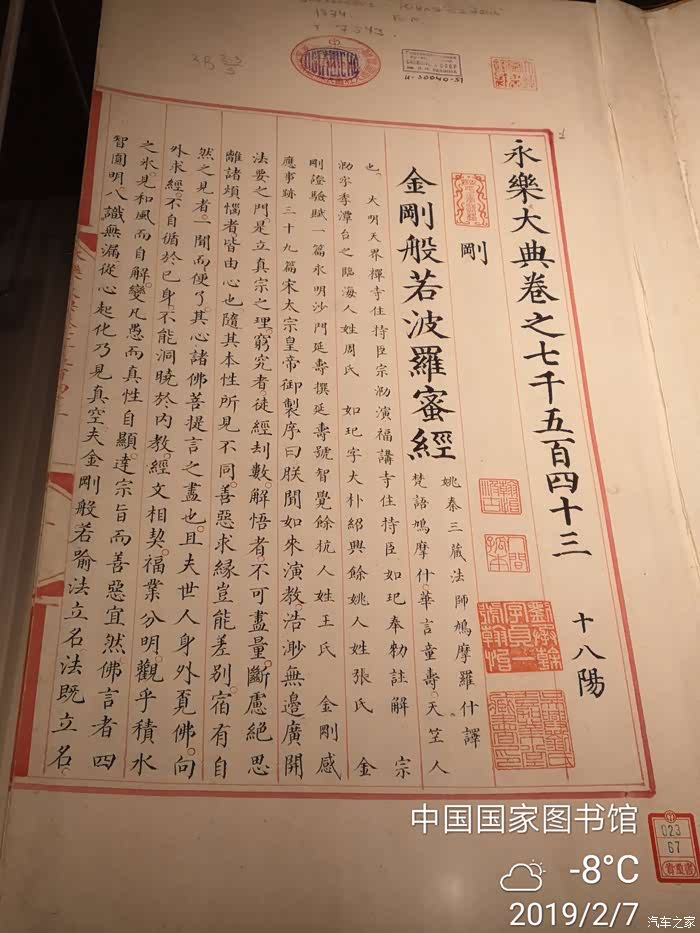 1874
7543
永樂大典卷之七千五百四十三
十八陽
剛
金剛般若波羅蜜經
姚秦三藏法師鳩摩羅什譯
梵語鳩摩什華言童壽天竺人
也大明天界禪寺住持臣宗泐演福講寺住持臣如玘奉勑註解宗
泐字季潭台之臨海人姓周氏如玘字大朴紹興餘姚人姓張氏金
剛證驗賦一篇永明沙門延壽撰延壽號智覺餘杭人姓王氏金剛感
應事跡三十九篇宋太宗皇帝御製序曰朕聞如來演教浩渺無邊廣開
法要之門是立真宗之理窮究者徒經刦數解悟者不可盡量斷慮絕思
離諸煩惱者皆由心也隨其本性所見不同善惡求緣豈能差别宿有自
然之見者一聞而便了其心諸佛菩提言之盡也且夫世人身外覓佛向
外求經不自循於己身不能洞曉於內教經文相契福業分明觀乎積水
之氷見和風而自解變凡愚而真性自顯達宗旨而善惡宜然佛言者四
智圓明八識無漏從心起化乃見真空夫金剛般若喻法立名法既立名
023
67
中国国家图书馆
-8°C
2019/2/7
汽车之家